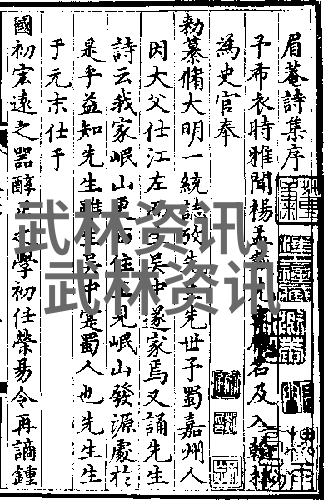 眉菴詩集序
予布衣時雅聞楊孟載先生名及入翰林
為史官奉
勅纂脩大明一統誌攷先生先世予蜀嘉州人
因大父仕江左而生吳中遂家焉又誦先生
詩云我家岷山更西住正見岷山發源處於
是乎益知先生雖生吳中寔蜀人也先生生
于元末仕于
國初宏遠之器醇正之學初任滎昜令再謫鍾
武林资讯
武林资讯